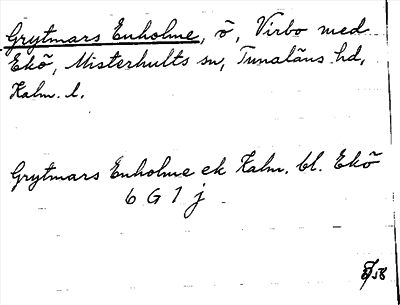 Grytmars Enholme, ö, Virbo med
Ekö, Misterhults sn, Tunaläns hd,
Kalm. l.
Grytmars Enholme ek Kalm. bl. Ekö
6 G 1 j